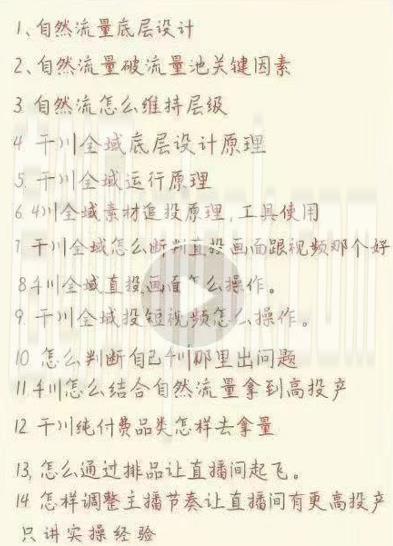 1、自然流量底层设计
2、自然流量破流量池关键因素
3 自然流怎么维持层级
4 千川全域底层设计原理
5. 千川全域运行原理
6. 千川全域素材追投原理,工具使用
7 千川全域怎么断判直投画面跟视频那个好
8 千川全域直投画面怎么操作。
9. 千川全域投短视频怎么操作。
10 怎么判断自己千川那里出问题
11. 千川怎么结合自然流量拿到高投产
12 千川纯付费品类怎样去拿量
13, 怎么通过排品让直播间起飞。
14. 怎样调整主播节奏让直播间有更高投产
只讲实操经验